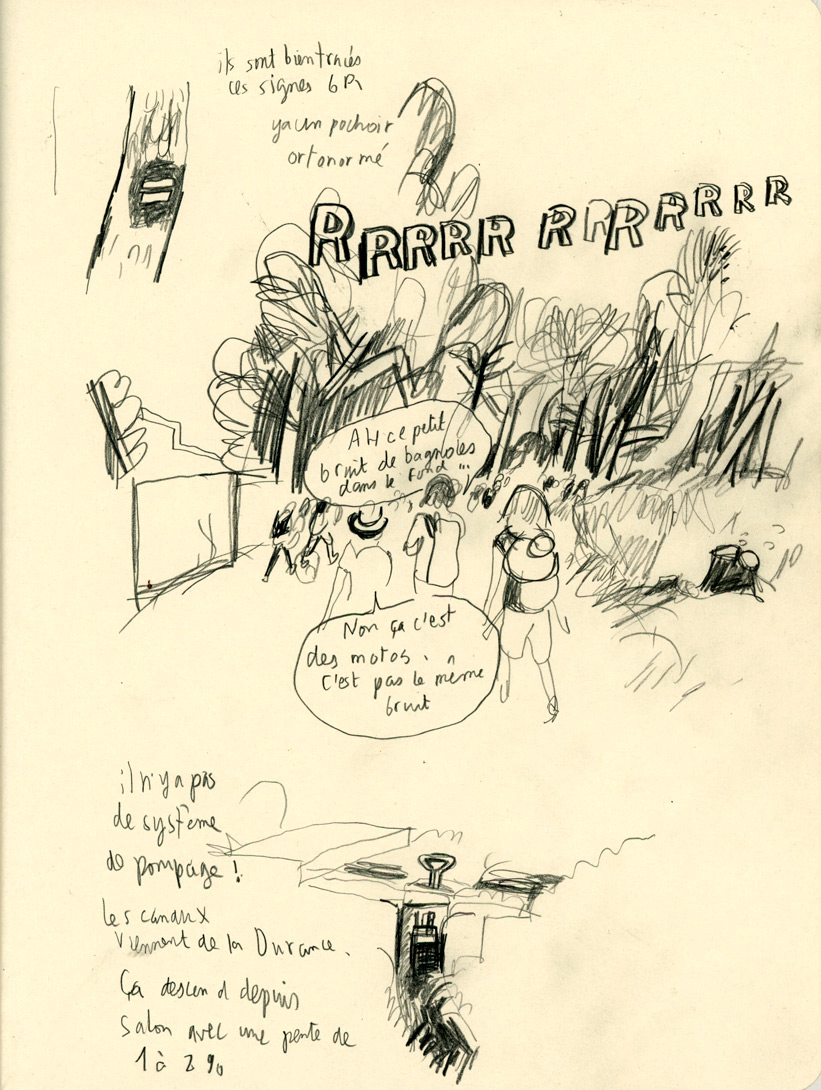 ils sont bien tracés
ces signes GR
ya un pochoir
ortonormé
RRRRR RRRRRRR
AH ce petit
bruit de bagnoles
dans le fond ...
Non ça c'est
des motos.
C'est pas le même
bruit
il n'y a pas
de système
de pompage !
Les canaux
viennent de la Durance.
Ça descend depuis
Salon avec une pente de
1 à 2 %